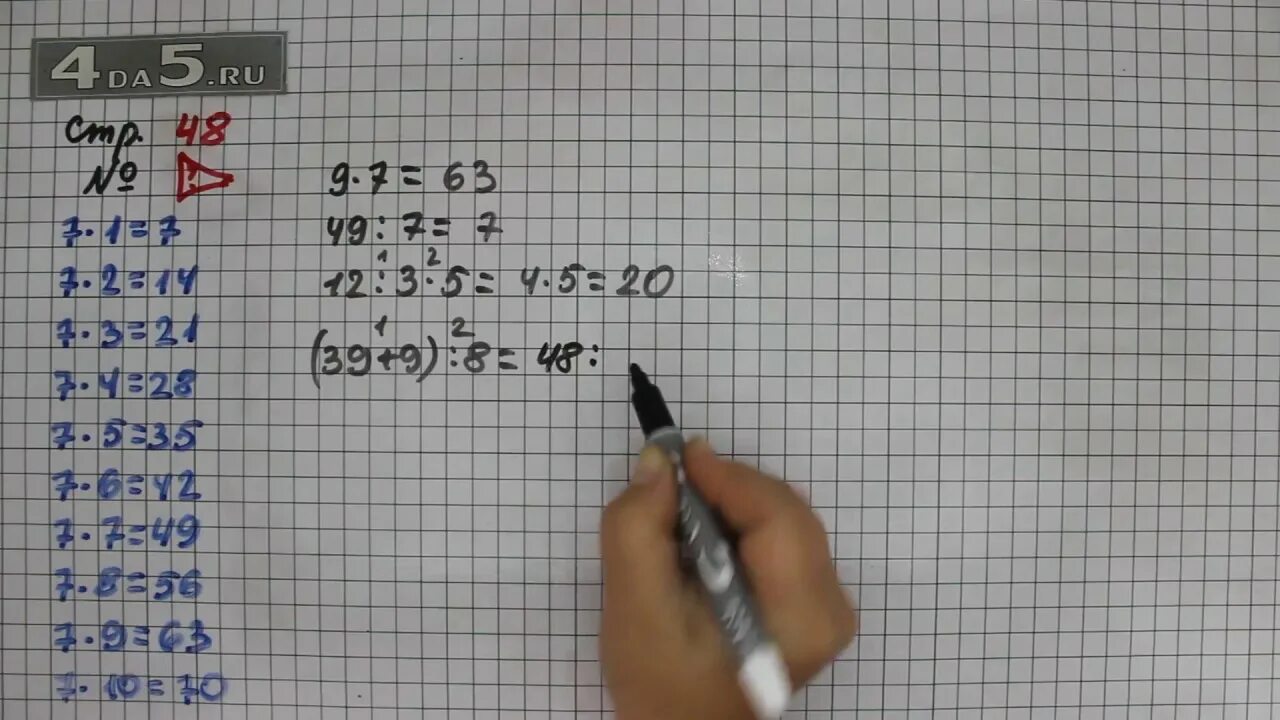 4DA5.RU
Стр. 48
№
7·1=7
7·2=14
7·3=21
7·4=28
7·5=35
7·6=42
7·7=49
7·8=56
7·9=63
7·10=70
9·7=63
49:7=7
1 2
12:3·5=4·5=20
1 2
(39+9):8=48: